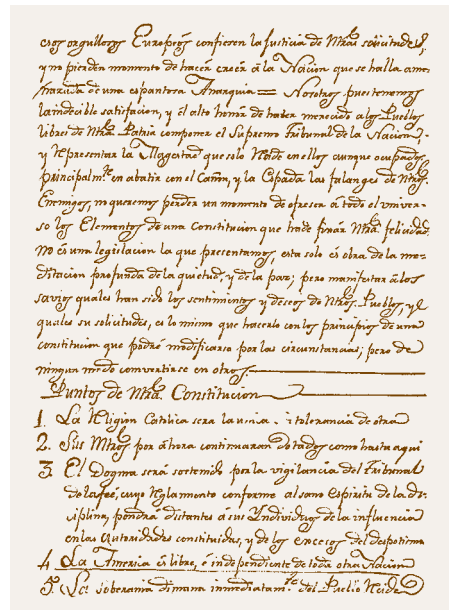 esos orgullosos Europeos confiesen la justicia de Ntras. solicitudes;
y no pierden momento de hacer creer á la Nacion que se halla ame-
nazada de una espantosa Anarquia = Nosotros pues tenemos
la indecible satisfacion, y el alto honor de haber merecido a los Pueblos
libres de Ntra. Patria componer el Supremo Tribunal de la Nacion,
y representar la Magestad que solo Reide en ellos aunque ocupados
principalmte. en abatir con el Cañon, y la Espada las falanges de Ntros.
Enemigos, no queremos perder un momento de ofrecer a todo el univer-
so los Elementos de una Constitucion que ha de fixar Ntra. felicidad
No es una legislacion la que presentamos, esta solo es obra de la me-
ditacion profunda de la quietud, y de la paz; pero manifestar á los
savios quales han sido los sentimientos y deseos de Ntros. Pueblos, y
quales su solicitudes, es lo mismo que hacerlo con los principios de una
constitucion que podrá modificarse por las circunstancias; pero de
ningun modo convertirse en otros.
Puntos de Ntra. Constitucion
1. La Religion Catolica sera la unica intolerancia de otra
2. Sus Mtros. por ahora continuaran dotados como hasta aqui
3. El Dogma será sostenido por la vigilancia del Tribunal
de la feé, cuyo Reglamento conforme al sano Espiritu de la di-
ciplina, pondrá distantes á sus Yndividuos de la influencia
en las Autoridades constituidas, y de los excecos del despotismo
4. La America es libre, é independiente de toda otra Nacion
5. La soberania dimana inmediatamte. del Pueblo Reide